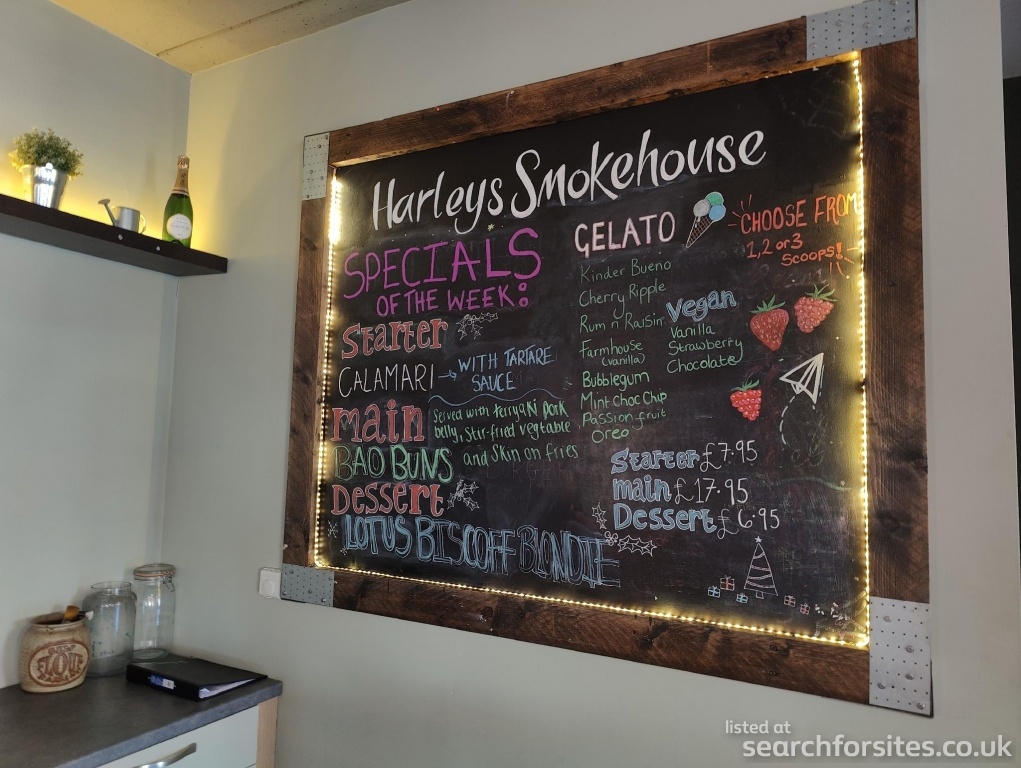 Harleys Smokehouse
SPECIALS
OF THE WEEK:
Starter
CALAMARI → WITH TARTARE
SAUCE
main
Served with terryaki pork
belly, stir-fried vegtable
and skin on fries
BAO BUNS
Dessert
LOTUS BISCOFF BLONDIE
GELATO
CHOOSE FROM
1, 2 or 3
SCOOPS!
Kinder Bueno
Cherry Ripple
Rum n Raisin
Farmhouse
(vanilla)
Bubblegum
Mint Choc Chip
Passion fruit
Oreo
Vegan
Vanilla
Strawberry
Chocolate
Starter £7.95
main £17.95
Dessert £6.95
listed at
searchforsites.co.uk